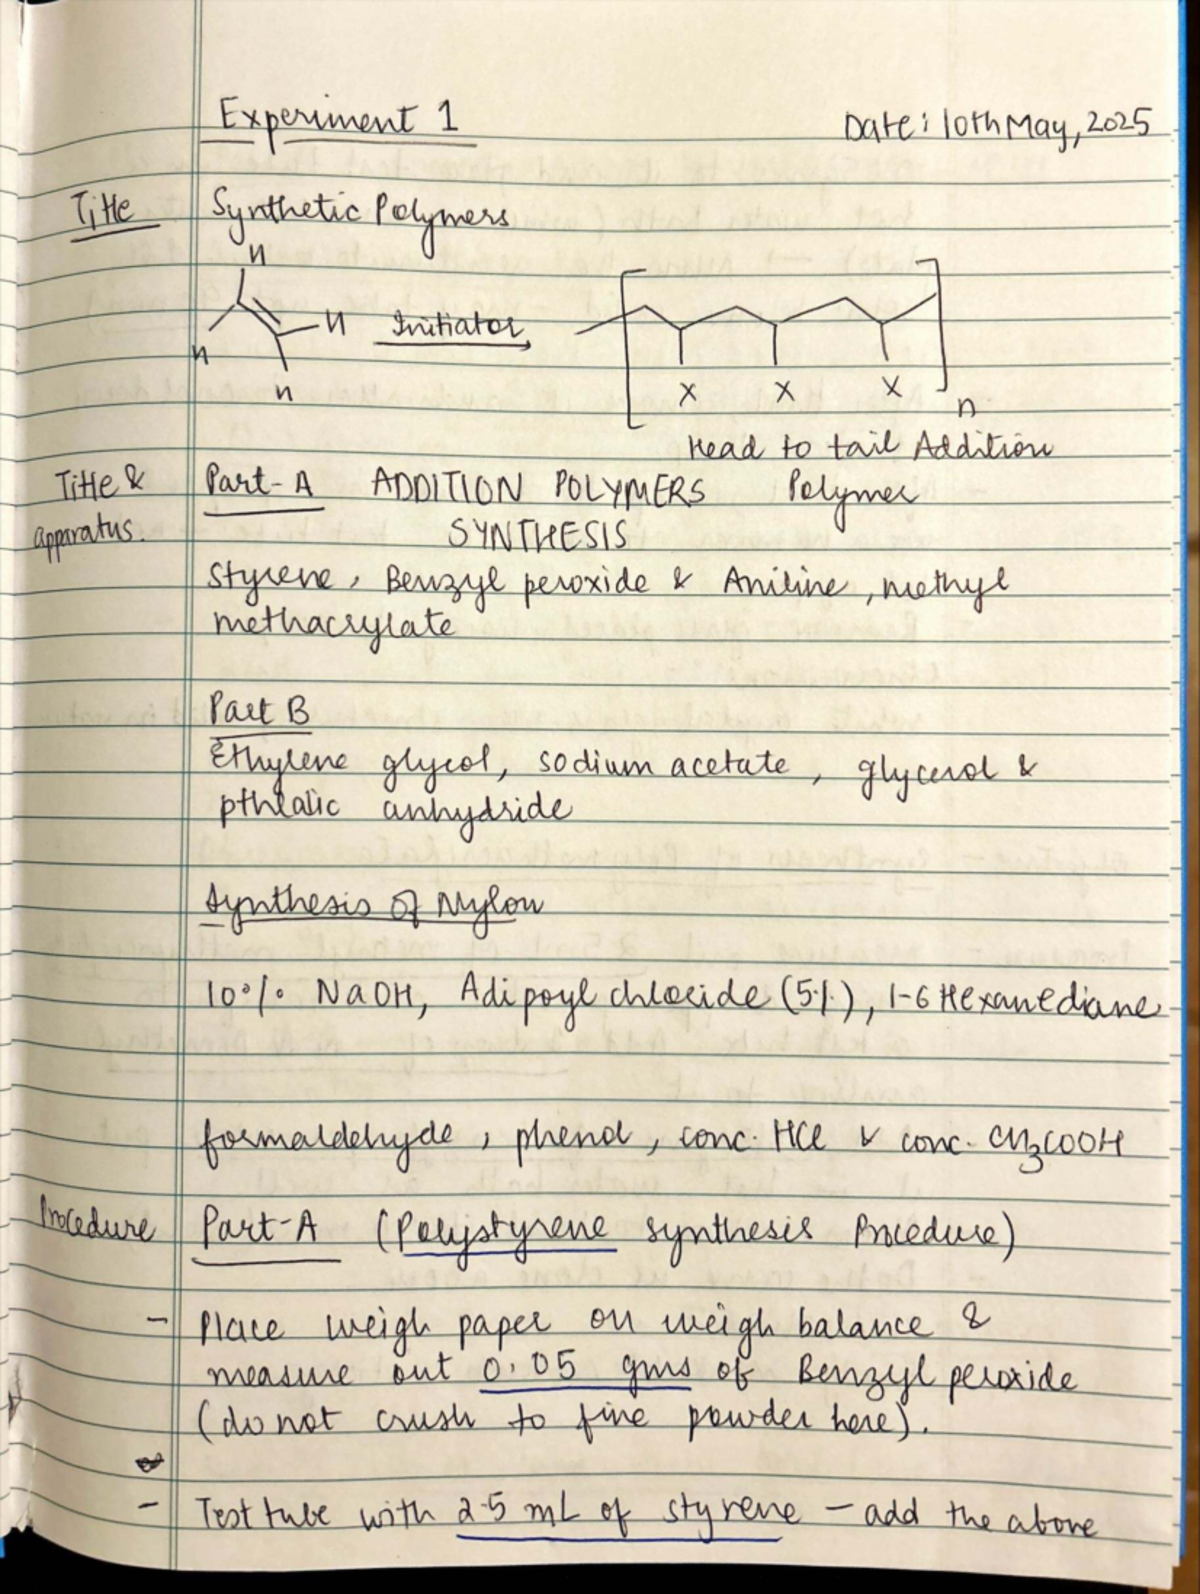 Experiment 1
Date: 10th May, 2025
Title Synthetic Polymers
H
H Initiator
H
H
X X X
n
Head to tail Addition
Title & Part-A ADDITION POLYMERS Polymer
apparatus. SYNTHESIS
Styrene, Benzyl peroxide & Aniline, methyl
methacrylate
Part B
Ethylene glycol, sodium acetate, glycerol &
pthlalic anhydride
Synthesis of Nylon
10% NaOH, Adipoyl chloride (5%), 1-6 Hexanediane
formaldehyde, phenol, conc. HCl & conc. CH3COOH
Procedure Part-A (Polystyrene synthesis Procedure)
- Place weigh paper on weigh balance &
measure out 0.05 gms of Benzyl peroxide
(do not crush to fine powder here).
- Test tube with 2.5 mL of styrene - add the above